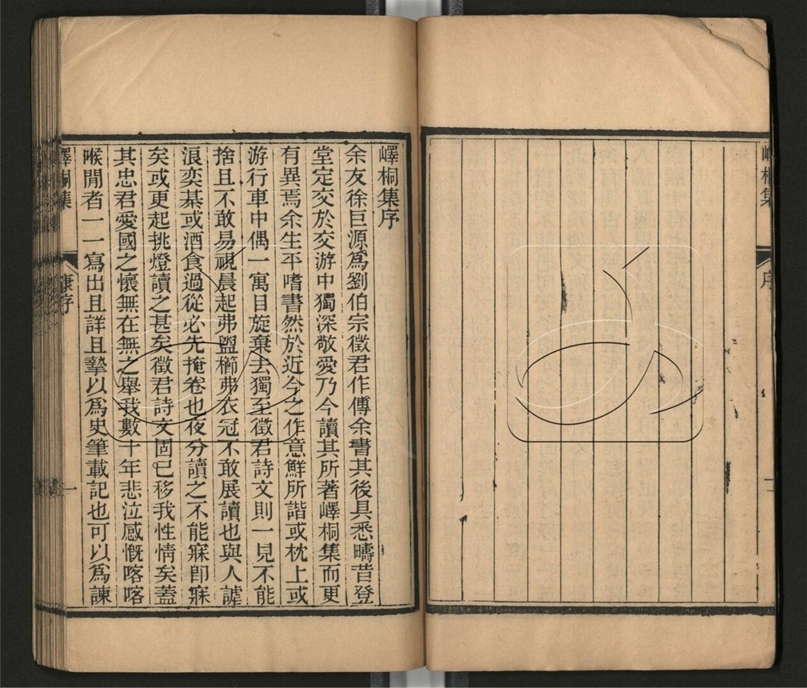 嶧桐集
序
嶧桐集序
余友徐巨源爲劉伯宗徵君作傳余書其後具悉疇昔登
堂定交於交游中獨深敬愛乃今讀其所著嶧桐集而更
有異焉余生平嗜書然於近今之作意鮮所諧或枕上或
游行車中偶一寓目旋棄去獨至徵君詩文則一見不能
捨且不敢易視晨起弗盥櫛弗衣冠不敢展讀也與人謔
浪奕棊或酒食過從必先掩卷也夜分讀之不能寐卽寐
矣或更起挑燈讀之甚矣徵君詩文固已移我性情矣蓋
其忠君愛國之懷無在無之舉我數十年悲泣感慨喀喀
喉閒者一一寫出且詳且摯以爲史筆載記也可以爲諫
嶧桐集
康序
一